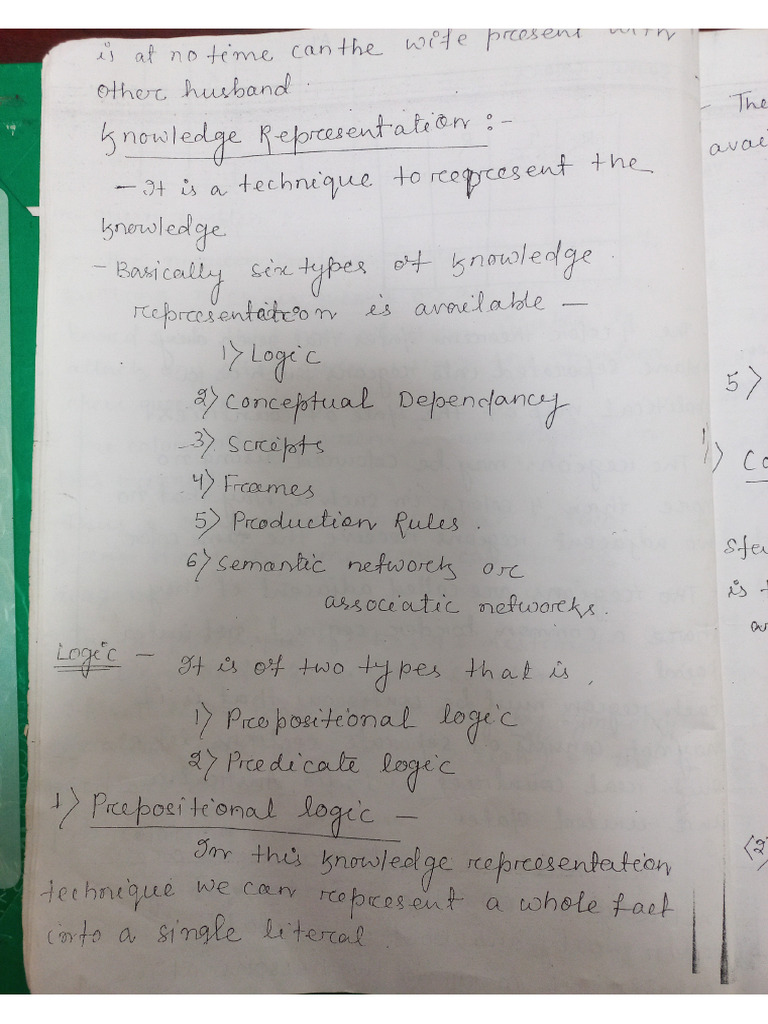 is at no time can the wife present with
other husband.
Knowledge Representation :-
- It is a technique to represent the
knowledge
- Basically six types of knowledge
representation is available -
1) Logic
2) Conceptual Dependancy
3) Scripts
4) Frames
5) Production Rules.
6) Semantic networks or
associatic networks.
Logic - It is of two types that is,
1) Prepositional logic
2) Predicate logic
1) Prepositional logic -
In this knowledge representation
technique we can represent a whole fact
into a single literal.
- The
avai
5)
1) Co
Ste
is t
ar
(2)